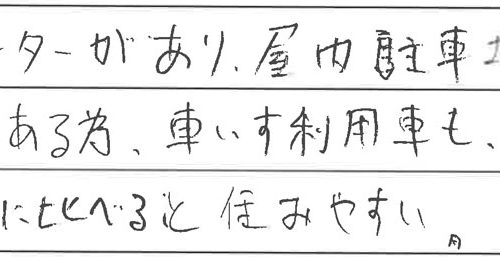 ターがあり、屋内駐車
ある為、車いす利用車も、
に比べると住みやすい。